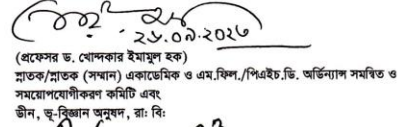 ২৮.০৯.২০২৬
(প্রফেসর ড. খোন্দকার ইমামুল হক)
স্নাতক/স্নাতক (সম্মান) একাডেমিক ও এম.ফিল./পিএইচ.ডি. অর্ডিন্যান্স সমন্বিত ও
সময়োপযোগীকরণ কমিটি এবং
ডীন, ভূ-বিজ্ঞান অনুষদ, রাঃ বিঃ